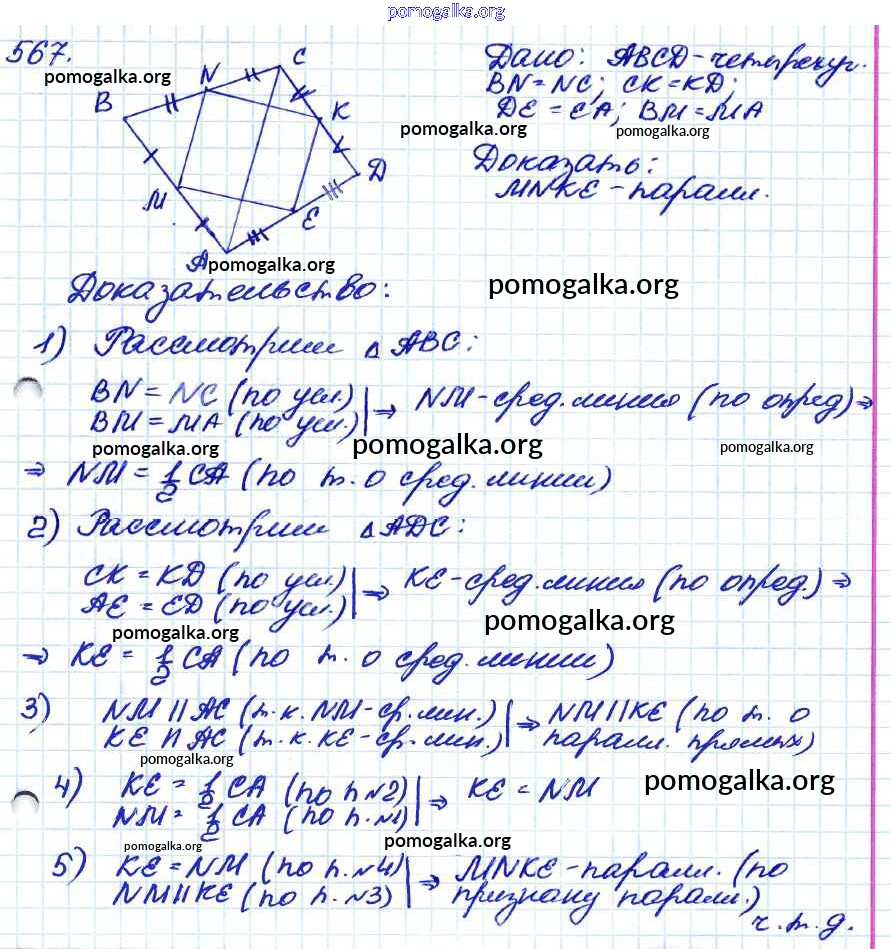 pomogalka.org
567.
pomogalka.org
B N C K D E A M
Дано: ABCD - четырехуг.
BN = NC; CK = KD;
DE = EA; BM = MA
pomogalka.org pomogalka.org
Доказать:
MNKE - паралл.
pomogalka.org
Доказательство:
pomogalka.org
1) Рассмотрим △ ABC:
BN = NC (по усл.) | ⇒ NM - сред. линия (по опред) ⇒
BM = MA (по усл.)
pomogalka.org pomogalka.org pomogalka.org
⇒ NM = 1/2 CA (по т. о сред. линии)
2) Рассмотрим △ ADC:
CK = KD (по усл.) | ⇒ KE - сред. линия (по опред.) ⇒
AE = ED (по усл.)
pomogalka.org pomogalka.org
⇒ KE = 1/2 CA (по т. о сред. линии)
3) NM || AC (т.к. NM - ср. лин.) | ⇒ NM || KE (по т. о
KE || AC (т.к. KE - ср. лин.) | паралл. прямых)
pomogalka.org
4) KE = 1/2 CA (по п. №2) | ⇒ KE = NM
NM = 1/2 CA (по п. №1)
pomogalka.org
pomogalka.org pomogalka.org
5) KE = NM (по п. №4) | ⇒ MNKE - паралл. (по
NM || KE (по п. №3) | признаку паралл.)
ч.т.д.